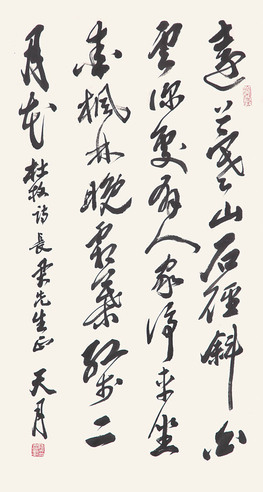 遠上寒山石徑斜白
雲深處有人家停車坐
愛楓林晚霜葉紅於二
月花 杜牧詩 長先生正 天月